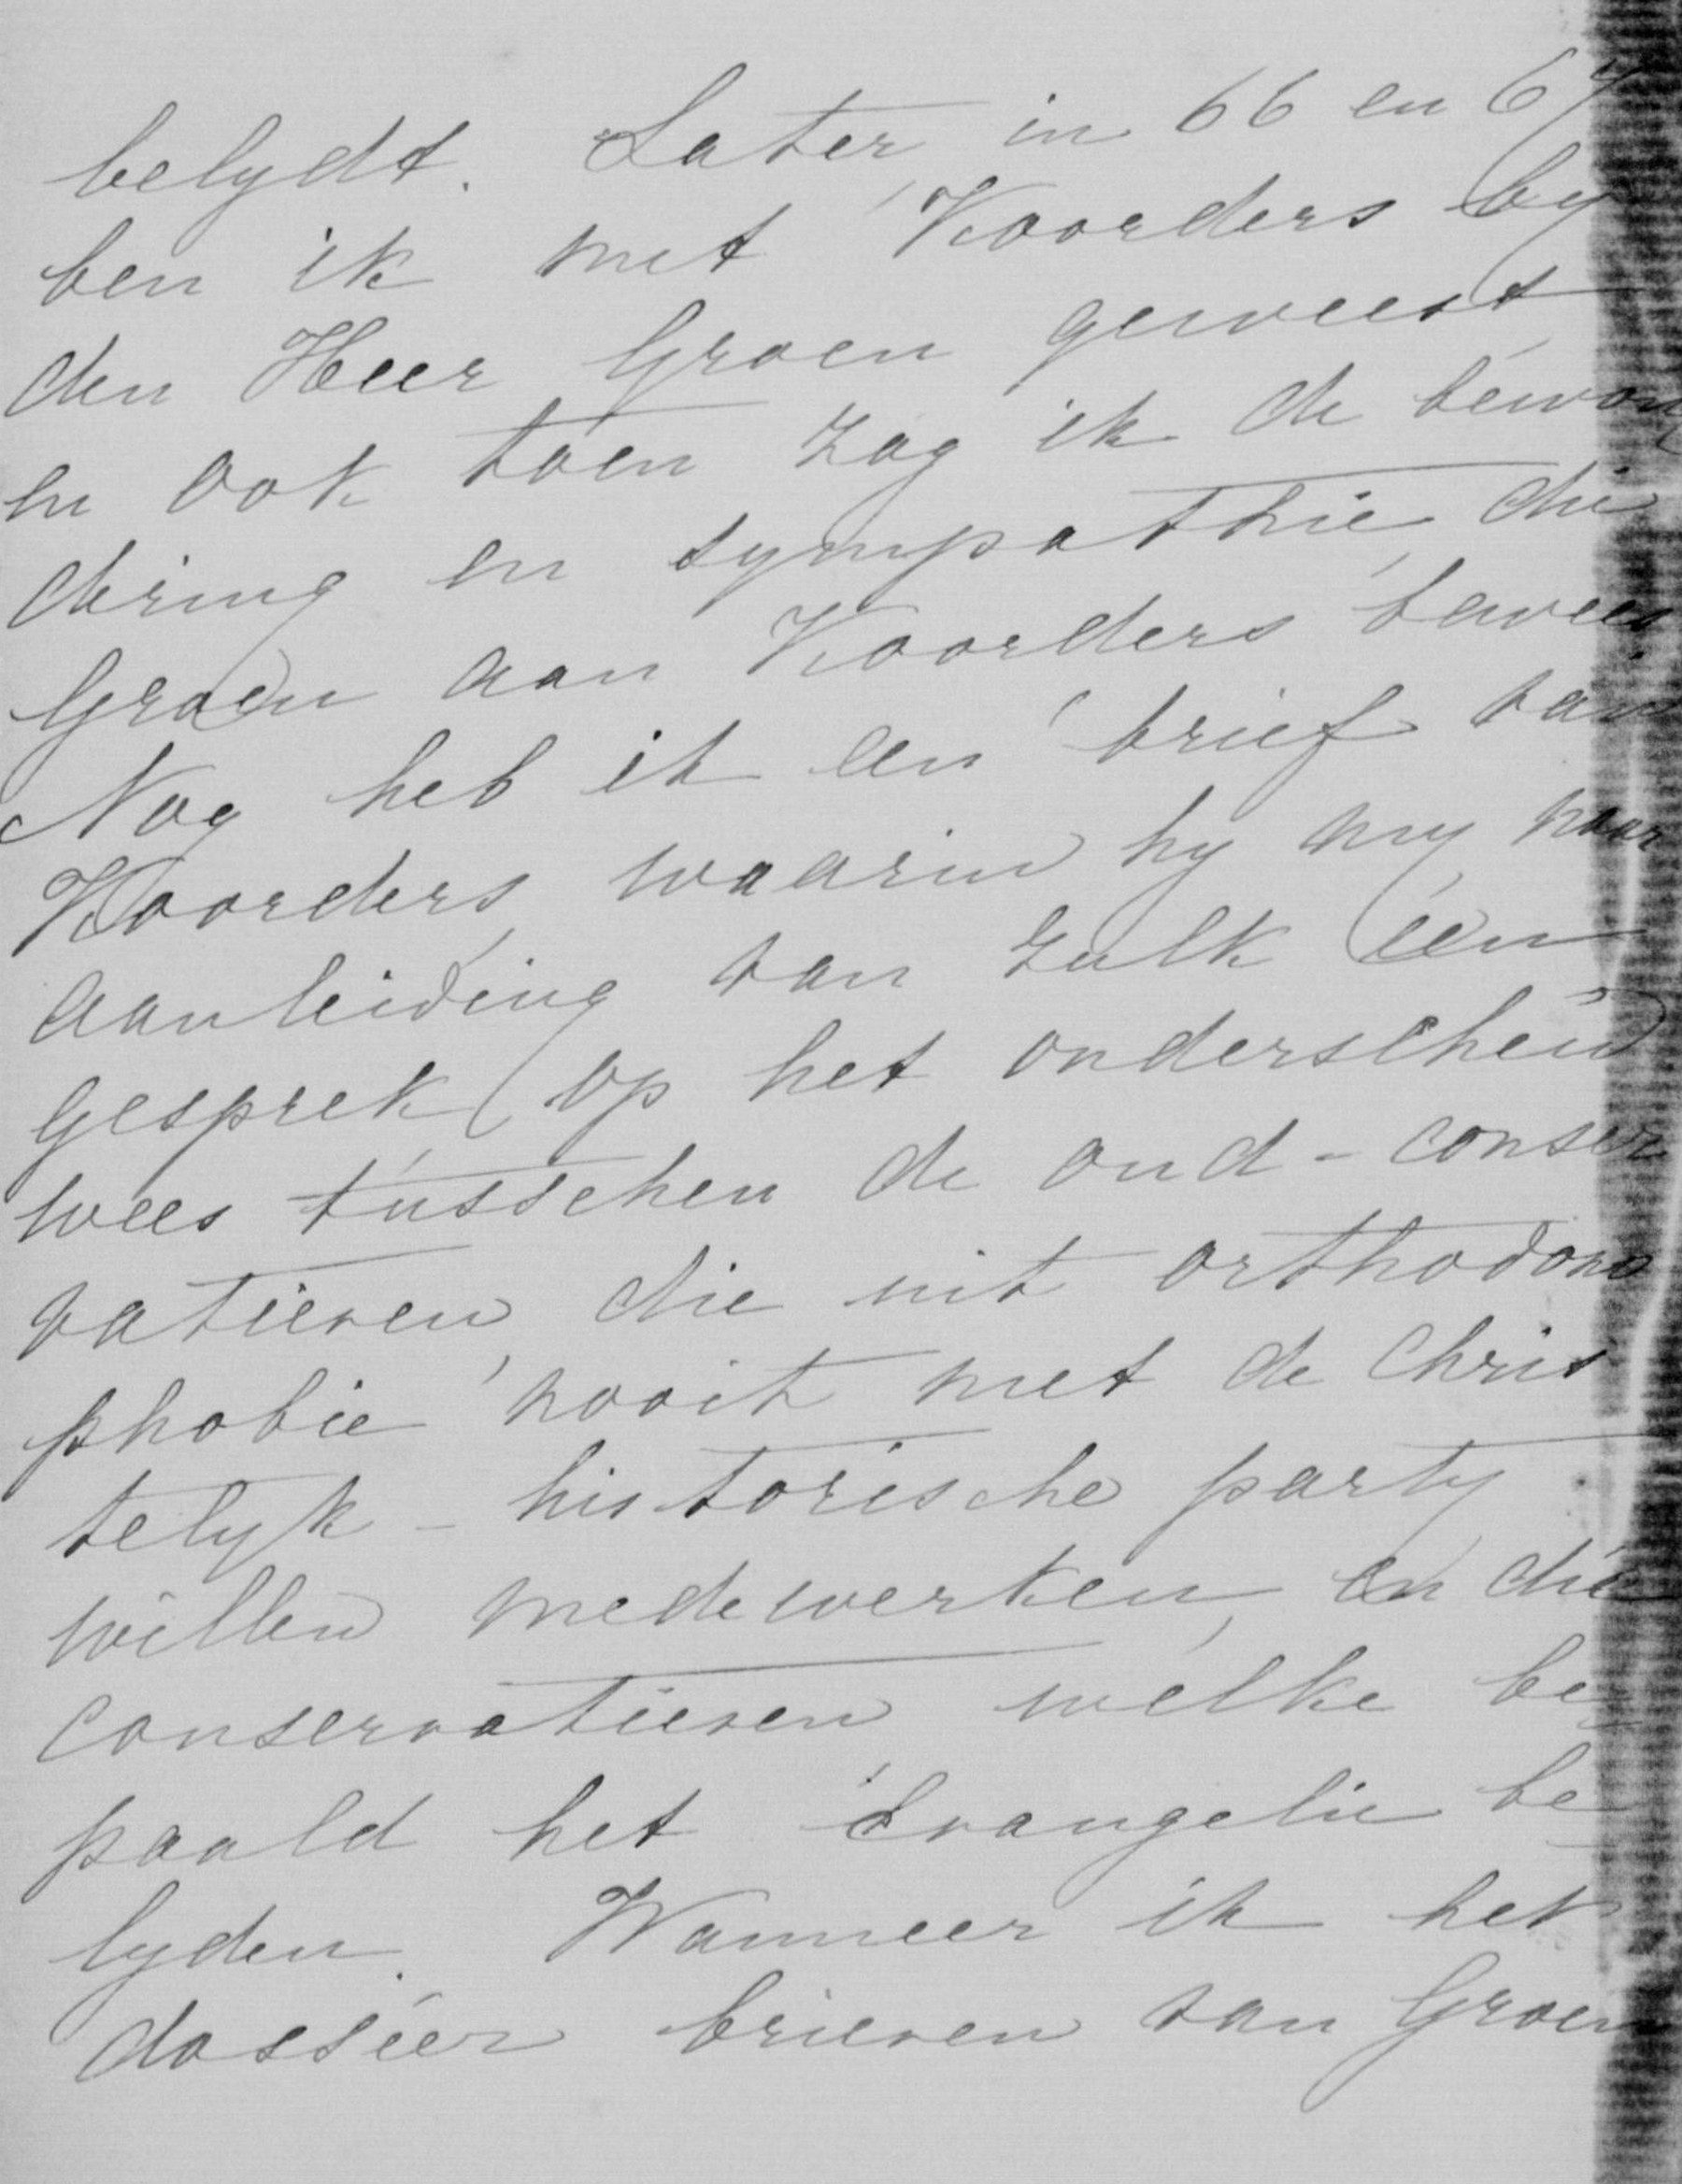 belydt. Later, in 66 en 67
ben ik met Koorders by
den Heer Groen geweest
en ook toen zag ik de bewon
dering en sympathie, die
Groen aan Koorders bewees.
Nog heb ik een brief van
Koorders, waarin hy my naar
aanleiding van zulk een
gesprek op het onderscheid
wees tusschen de oud-conser
vatieven, die uit orthodoxo
phobie nooit met de Chris
telyk-historische party
willen medewerken, en die
conservatieven welke be
paald het Evangelie be
lyden. Wanneer ik het
dosséer brieven van Groen